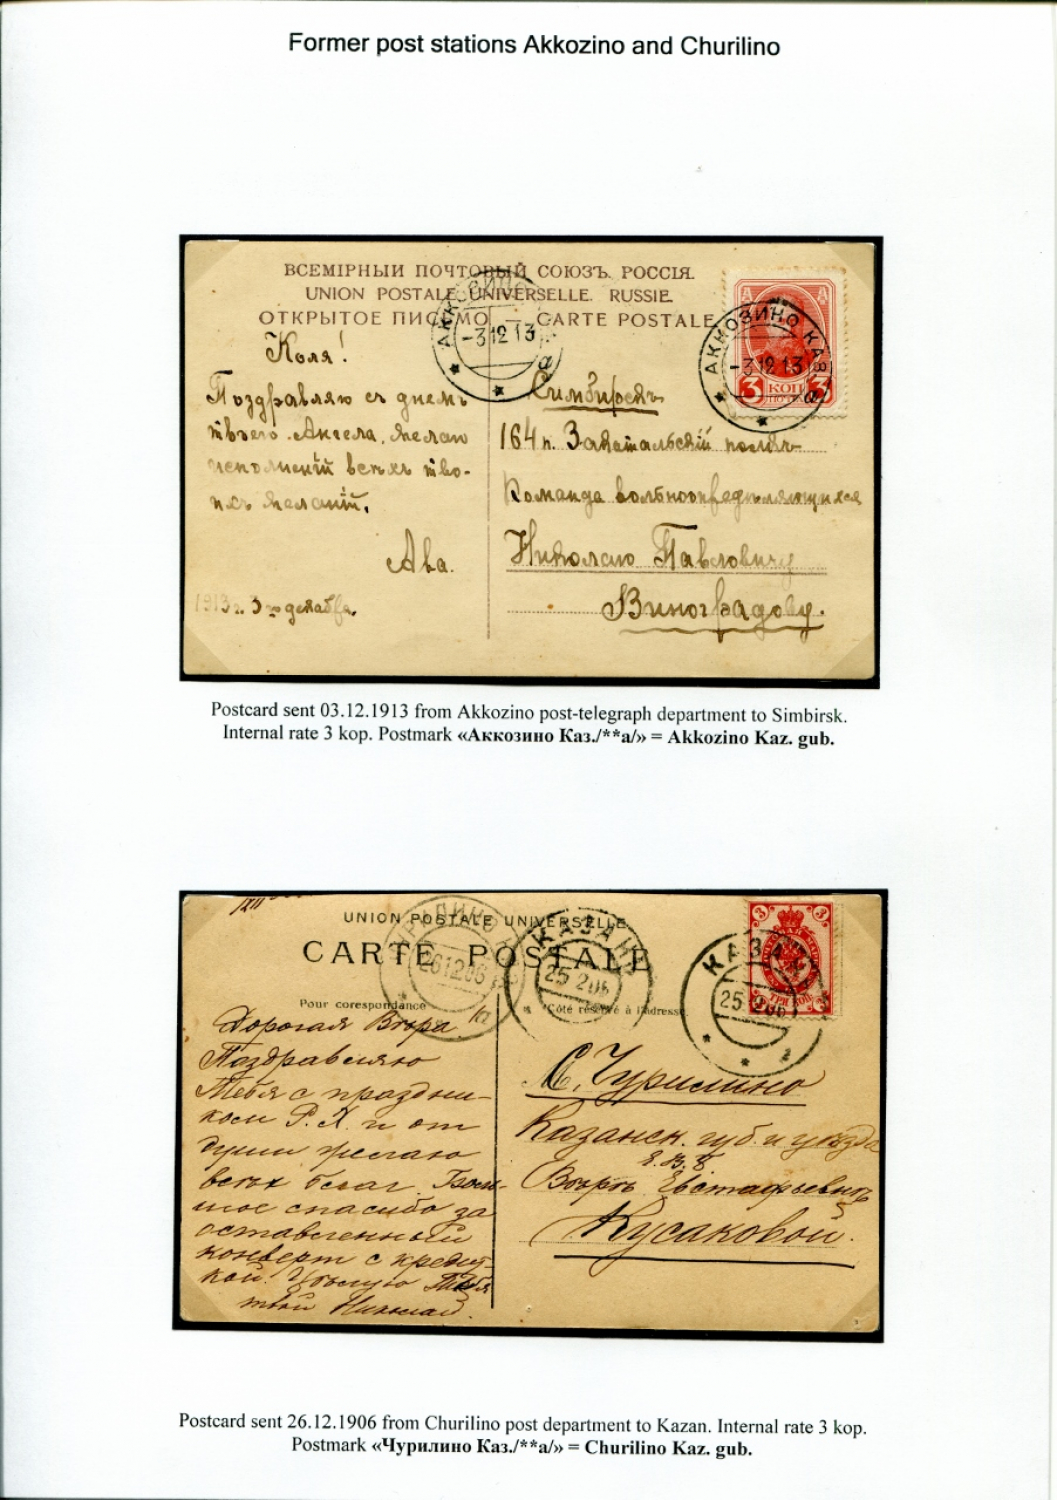 Former post stations Akkozino and Churilino
ВСЕМІРНЫЙ ПОЧТОВЫЙ СОЮЗЪ. РОССІЯ.
UNION POSTALE UNIVERSELLE. RUSSIE.
ОТКРЫТОЕ ПИСЬМО — CARTE POSTALE
АККОЗИНО
-3 12 13
а
АККОЗИНО КАЗ.
-3 12 13
а
3 КОП 3
Коля!
Поздравляю съ днемъ
твоего Ангела, желаю
исполненій всѣхъ тво-
ихъ желаній.
Ава.
1913 г. 3го декабря.
Симбирскъ
164 п. Закатальскій полкъ
Команда вольноопредѣляющихся
Николаю Павловичу
Виноградову.
Postcard sent 03.12.1913 from Akkozino post-telegraph department to Simbirsk.
Internal rate 3 kop. Postmark «Аккозино Каз./**а/» = Akkozino Kaz. gub.
UNION POSTALE UNIVERSELLE
CARTE POSTALE
Pour corespondance
Côté réservé à l'adresse
26 12 06
КАЗАНЬ
25 12 06
КАЗАНЬ
25 12 06
3 3
ТРИ КОП.
Дорогая Вѣра
Поздравляю
Тебя с праздни-
ком Р. Х. и от
души желаю
всѣх благ. Боль-
шое спасибо за
оставленный
конверт с кредит-
кой. Цѣлую Тебя
твой Николай.
С. Чурилино
Казанск. губ. и уѣзда
Е. В. Б.
Вѣрѣ Евстафьевнѣ
Кусаковой.
Postcard sent 26.12.1906 from Churilino post department to Kazan. Internal rate 3 kop.
Postmark «Чурилино Каз./**а/» = Churilino Kaz. gub.